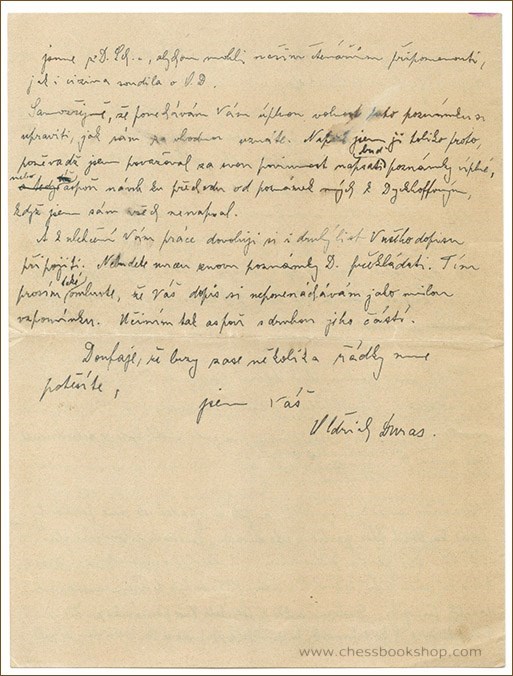 jsme z D. Sch., abychom mohli našim čtenářům připomenouti,
jak i cizina soudila o O.D.
Samozřejmě, že ponechávám Vám úplnou volnost tuto poznámku si
upraviti, jak sám za vhodno uznáte. Napsal jsem ji toliko proto,
poněvadž jsem považoval za svou povinnost buď napsati poznámky úplné,
nebo aspoň nárok ku přechodu od poznámek mých k Dyckhoffovým,
když jsem sám všech nenapsal.
A k ulehčení Vám práce dovoluji si i druhý list Vašeho dopisu
připojiti. Nebudete muset znovu poznámky D. překládati. Tím
prosím také omluvte, že Váš dopis si neponechávám jako milou
vzpomínku. Učiním tak aspoň s druhou jeho částí.
Doufaje, že brzy zase několika řádky mne
potěšíte,
jsem Váš
Oldřich Duras.
www.chessbookshop.com